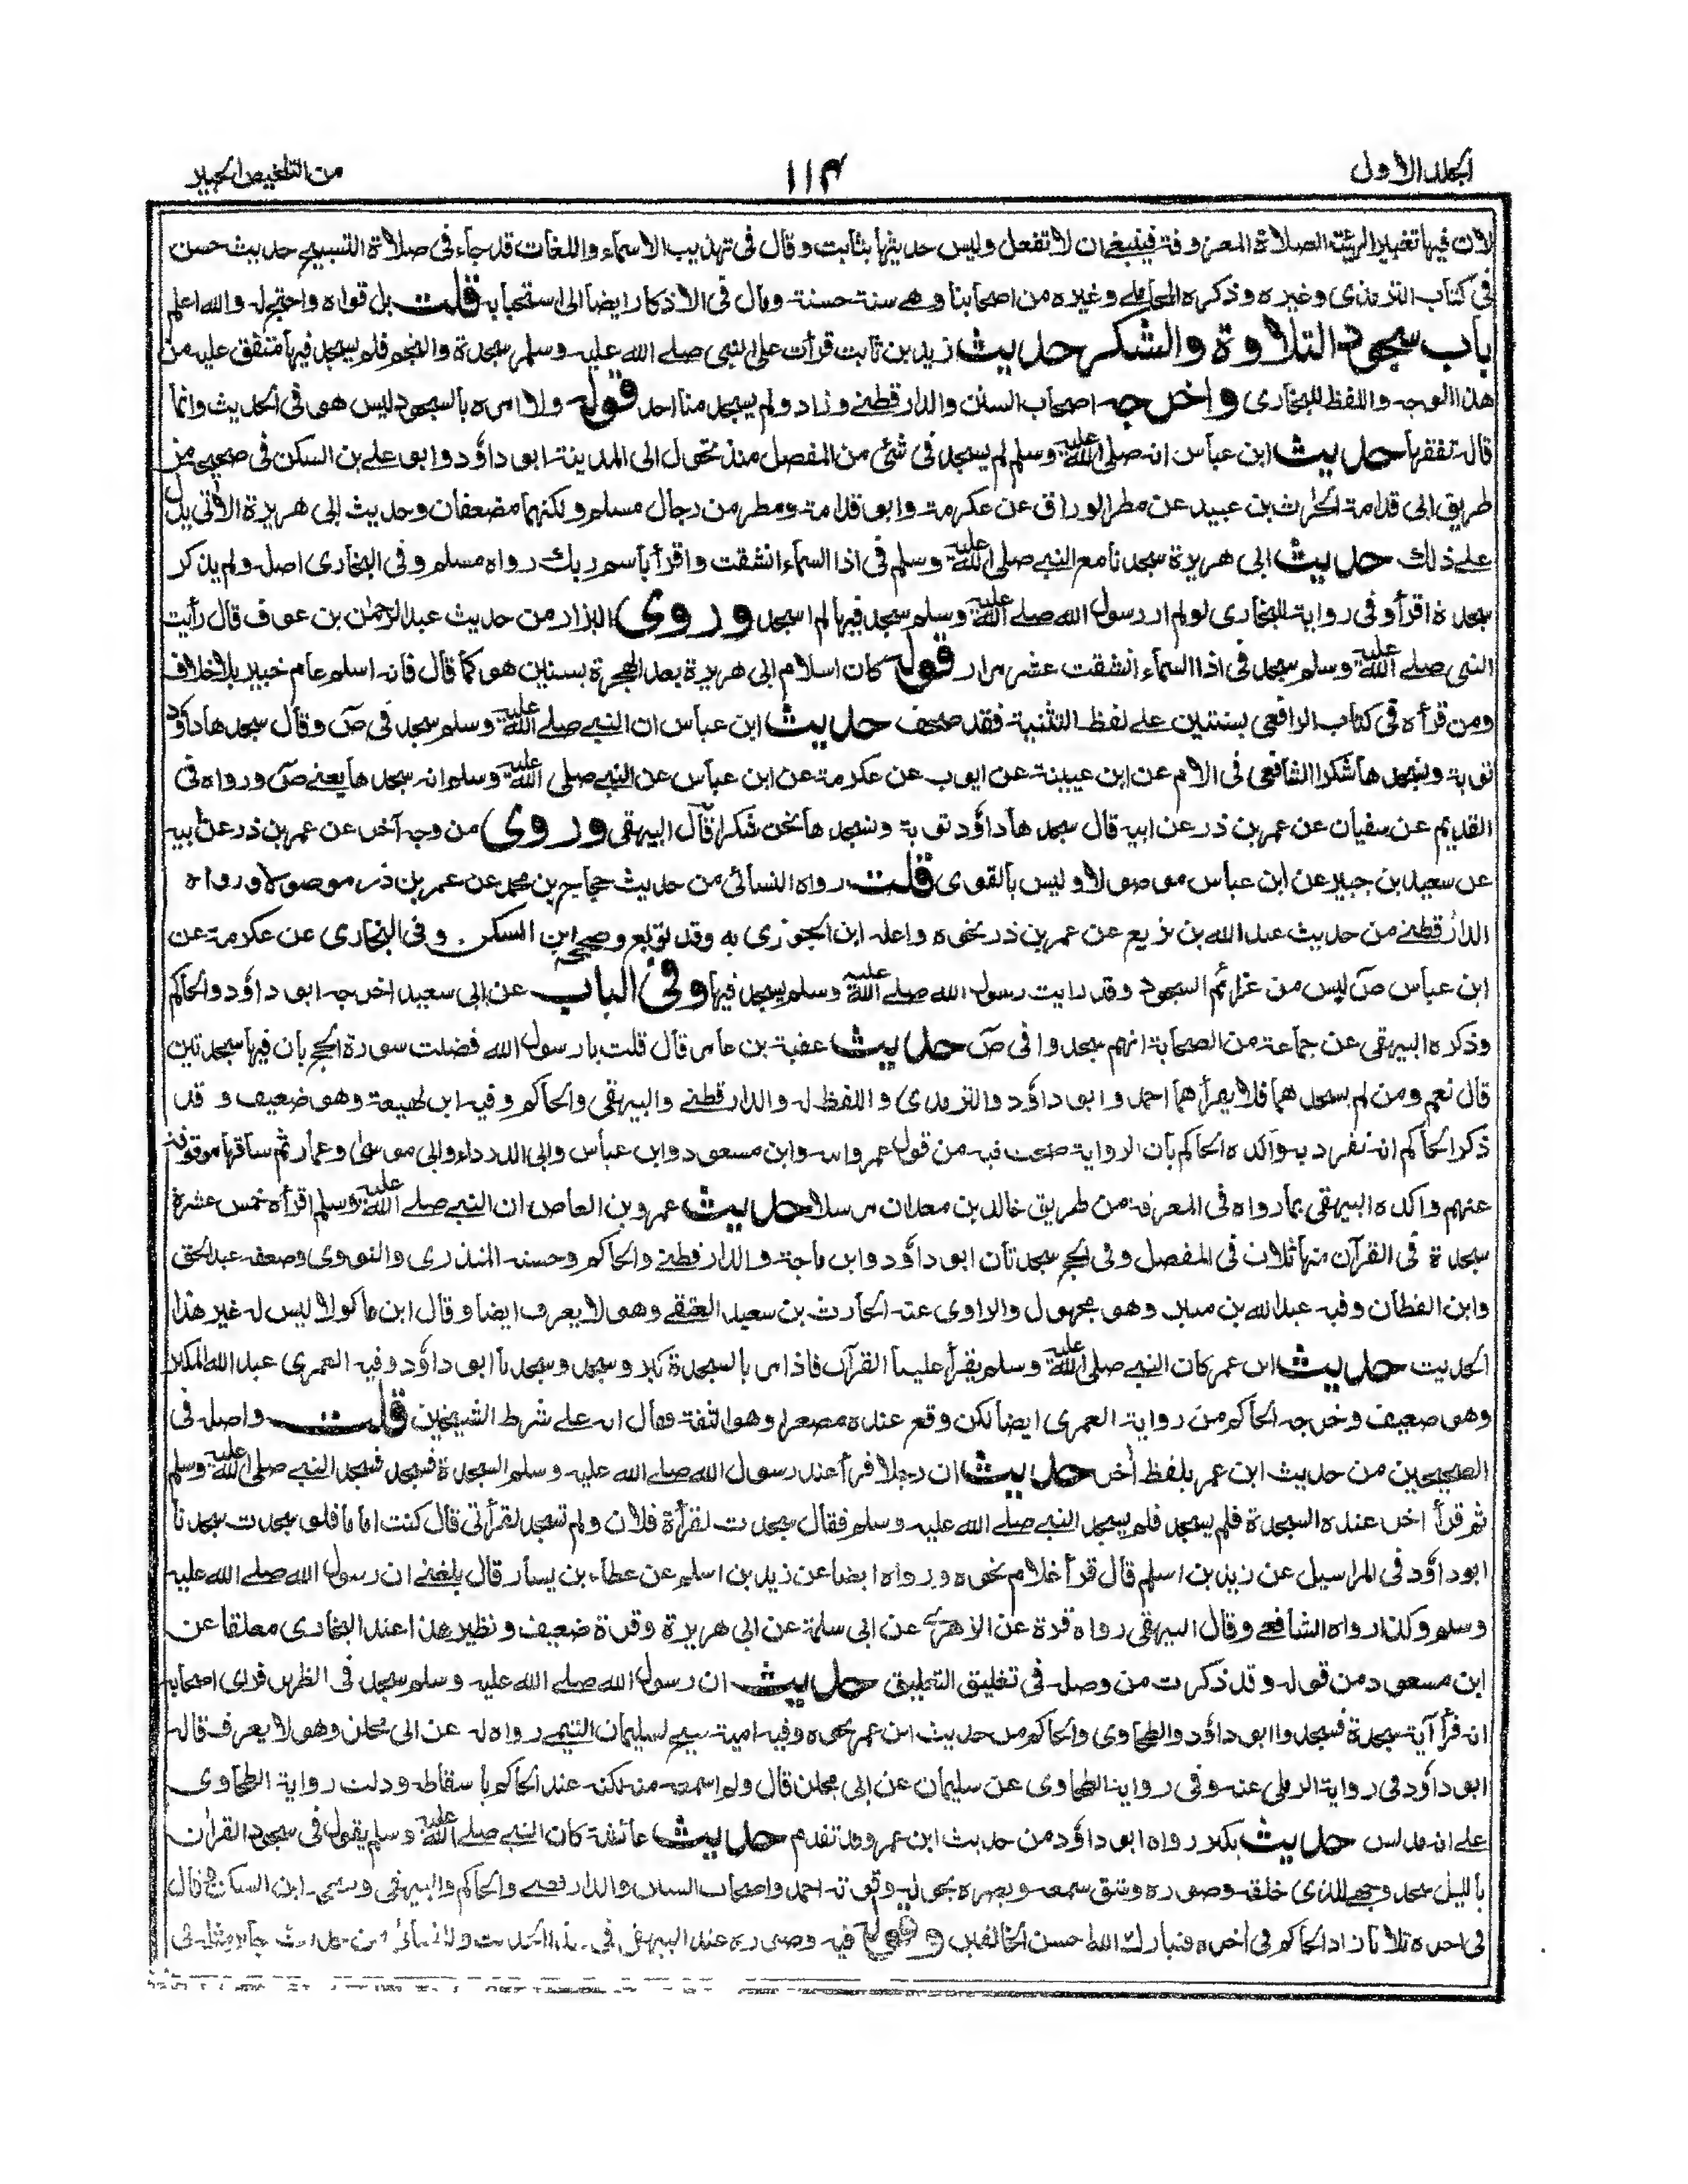 الجلد الاول
١١٣
من التلخيص الحبير
لان فيها تغيير الهيئة الصلاة المعروفة فينبغى ان لا تفعل وليس حديثها بثابت وقال فى تهذيب الاسماء واللغات قد جاء فى صلاة التسبيح حديث حسن
فى كتاب الترمذى وغيره وذكره المحاملى وغيره من اصحابنا وهى سنة حسنة ومال فى الاذكار ايضا الى استحبابه قلت بل قواه واحتج له والله اعلم
باب سجود التلاوة والشكر حديث زيد بن ثابت قرأت على النبى صلى الله عليه وسلم سجدة والنجم فلم يسجد فيها متفق عليه من
هذا الوجه واللفظ للبخارى واخرجه اصحاب السنن والدارقطنى وزاد ولم يسجد منا احد قوله ولا امره بالسجود ليس هو فى الحديث وانما
قاله تفقها حديث ابن عباس انه صلى الله عليه وسلم لم يسجد فى شئ من المفصل منذ تحول الى المدينة ابو داؤد وابو على بن السكن فى صحيحه من
طريق ابى قدامة الحارث بن عبيد عن مطر الوراق عن عكرمة وابو قدامة ومطر من رجال مسلم ولكنهما مضعفان وحديث ابى هريرة الآتى يدل
على ذلك حديث ابى هريرة سجدنا مع النبى صلى الله عليه وسلم فى اذا السماء انشقت واقرأ باسم ربك رواه مسلم وفى البخارى اصله ولم يذكر
سجدة اقرأ وفى رواية للبخارى لو لم ار رسول الله صلى الله عليه وسلم سجد فيها لم اسجد وروى البزار من حديث عبد الرحمٰن بن عوف قال رأيت
النبى صلى الله عليه وسلم سجد فى اذا السماء انشقت عشر مرار قوله كان اسلام ابى هريرة بعد الهجرة بسنين هو كما قال فانه اسلم عام خيبر بلا خلاف
ومن قرأه فى كتاب الرافعى بسنتين على لفظ التثنية فقد صحف حديث ابن عباس ان النبى صلى الله عليه وسلم سجد فى ص وقال سجدها داؤد
توبة ونسجدها شكرا الشافعى فى الام عن ابن عيينة عن ايوب عن عكرمة عن ابن عباس عن النبى صلى الله عليه وسلم انه سجدها يعنى ص ورواه فى
القديم عن سفيان عن عمر بن ذر عن ابيه قال سجدها داؤد توبة ونسجدها نحن شكرا قال البيهقى وروى من وجه آخر عن عمر بن ذر عن ابيه
عن سعيد بن جبير عن ابن عباس موصولا وليس بالقوى قلت رواه النسائى من حديث حجاج بن محمد عن عمر بن ذر موصولا ورواه
الدارقطنى من حديث عبد الله بن بزيع عن عمر بن ذر نحوه واعله ابن الجوزى به وقد توبع وصححه ابن السكن . وفى البخارى عن عكرمة عن
ابن عباس ص ليس من عزائم السجود وقد رايت رسول الله صلى الله عليه وسلم يسجد فيها وفى الباب عن ابى سعيد اخرجه ابو داؤد والحاكم
وذكره البيهقى عن جماعة من الصحابة انهم سجدوا فى ص حديث عقبة بن عامر قال قلت يا رسول الله فضلت سورة الحج بان فيها سجدتين
قال نعم ومن لم يسجدهما فلا يقرأهما احمد وابو داؤد والترمذى واللفظ له والدارقطنى والبيهقى والحاكم وفيه ابن لهيعة وهو ضعيف وقد
ذكر الحاكم انه تفرد به واكده الحاكم بان الرواية صحت فيه من قول عمر وابنه وابن مسعود وابن عباس وابى الدرداء وابى موسى وعمار ثم ساقها موقوفة
عنهم واكده البيهقى بما رواه فى المعرفة من طريق خالد بن معدان مرسلا حديث عمرو بن العاص ان النبى صلى الله عليه وسلم اقرأه خمس عشرة
سجدة فى القرآن منها ثلاث فى المفصل وفى الحج سجدتان ابو داؤد وابن ماجة والدارقطنى والحاكم وحسنه المنذرى والنووى وضعفه عبد الحق
وابن القطان وفيه عبد الله بن منين وهو مجهول والراوى عنه الحارث بن سعيد العتقى وهو لا يعرف ايضا وقال ابن ماكولا ليس له غير هذا
الحديث حديث ابن عمر كان النبى صلى الله عليه وسلم يقرأ علينا القرآن فاذا مر بالسجدة كبر وسجد وسجدنا ابو داؤد وفيه العمرى عبد الله المكبر
وهو ضعيف وخرجه الحاكم من رواية العمرى ايضا لكن وقع عنده مصغرا وهو الثقة وقال انه على شرط الشيخين قلت واصله فى
الصحيحين من حديث ابن عمر بلفظ اٰخر حديث ان رجلا قرأ عند رسول الله صلى الله عليه وسلم السجدة فسجد فسجد النبى صلى الله عليه وسلم
ثم قرأ اخر عنده السجدة فلم يسجد فلم يسجد النبى صلى الله عليه وسلم فقال سجدت لقرأة فلان ولم تسجد لقرأتى قال كنت اماما فلو سجدت سجدنا
ابو داؤد فى المراسيل عن زيد بن اسلم قال قرأ غلام نحوه ورواه ايضا عن زيد بن اسلم عن عطاء بن يسار قال بلغنى ان رسول الله صلى الله عليه
وسلم وكذا رواه الشافعى وقال البيهقى رواه قرة عن الزهرى عن ابى سلمة عن ابى هريرة وقرة ضعيف ونظير هذا عند البخارى معلقا عن
ابن مسعود من قوله وقد ذكرت من وصله فى تغليق التعليق حديث ان رسول الله صلى الله عليه وسلم سجد فى الظهر فراى اصحابه
انه قرأ آية سجدة فسجدوا ابو داؤد والطحاوى والحاكم من حديث ابن عمر نحوه وفيه امية شيخ لسليمان التيمى رواه له عن ابى مجلز وهو لا يعرف قاله
ابو داؤد فى رواية الرملى عنه وفى رواية الطحاوى عن سليمان عن ابى مجلز قال ولم اسمعه منه لكنه عند الحاكم باسقاطه ودلت رواية الطحاوى
على انه مدلس حديث يكبر رواه ابو داؤد من حديث ابن عمر وقد تقدم حديث عائشة كان النبى صلى الله عليه وسلم يقول فى سجود القراٰن
بالليل سجد وجهى للذى خلقه وصوره وشق سمعه وبصره بحوله وقوته احمد واصحاب السنن والدارقطنى والحاكم والبيهقى وصححه ابن السكن وقال
فى اخره ثلاثا زاد الحاكم فى اٰخره فتبارك الله احسن الخالقين وقوله فيه وصوره عند البيهقى فى هذا الحديث وللنسائى من حديث جابر مثله فى